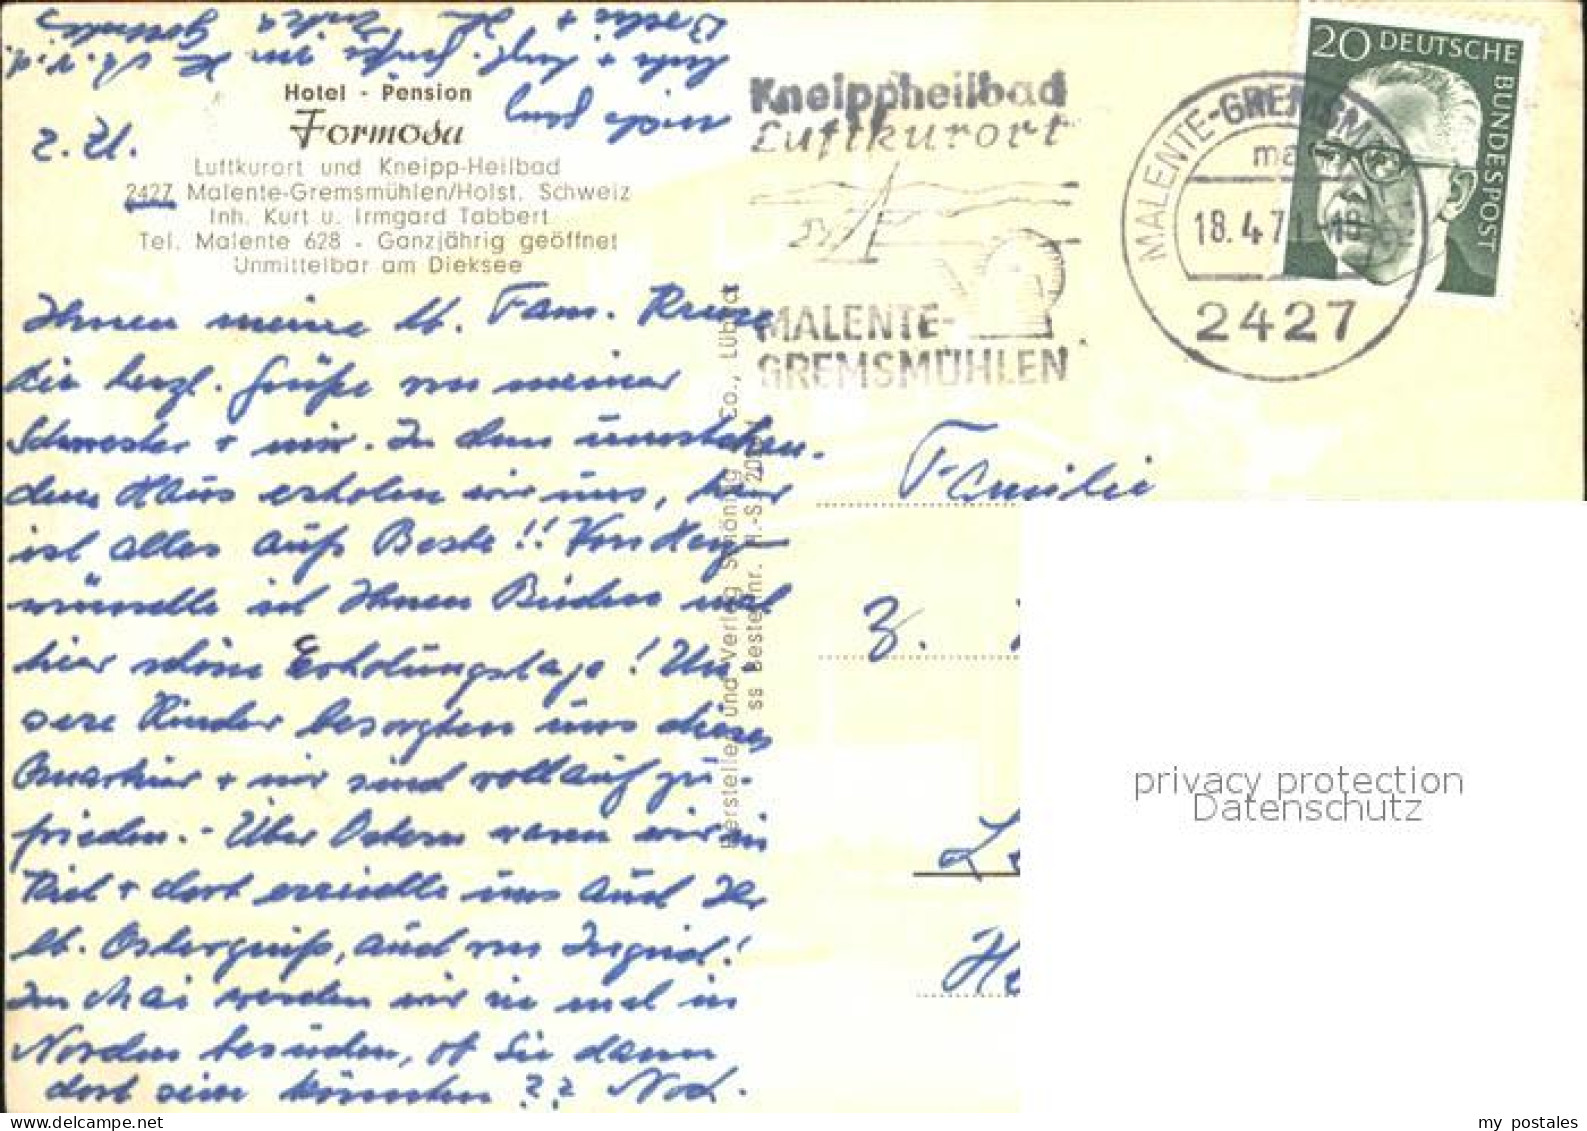 Hotel - Pension
Formosa
Luftkurort und Kneipp-Heilbad
2427 Malente-Gremsmühlen/Holst. Schweiz
Inh. Kurt u. Irmgard Tabbert
Tel. Malente 628 - Ganzjährig geöffnet
Unmittelbar am Dieksee
Ihnen meine lb. Fam. Kruse
die herzl. Grüße von meiner
Schwester + mir. In dem umstehen-
dem Haus erholen wir uns, hier
ist alles aufs Beste!! Von
wünsche ich Ihnen Beiden mal
hier schöne Erholungstage! Un-
sere Kinder besorgten uns dieses
Quartier + wir sind vollauf zu-
frieden. - Über Ostern waren wir in
Kiel + dort erreichte uns auch Ihr
lb. Ostergruß, auch von Ingrid!
Im Mai werden wir sie mal in
Norden besuchen, ob Sie dann
dort sein könnten?? Noch.
Hersteller und Verlag Schöning & Co., Lübeck
ss Bestellnr.
Kneippheilbad
Luftkurort
MALENTE-
GREMSMÜHLEN
MALENTE-GREMSM
18.4.71-18
2427
20 DEUTSCHE
BUNDESPOST
Familie
3.
privacy protection
Datenschutz
my postales